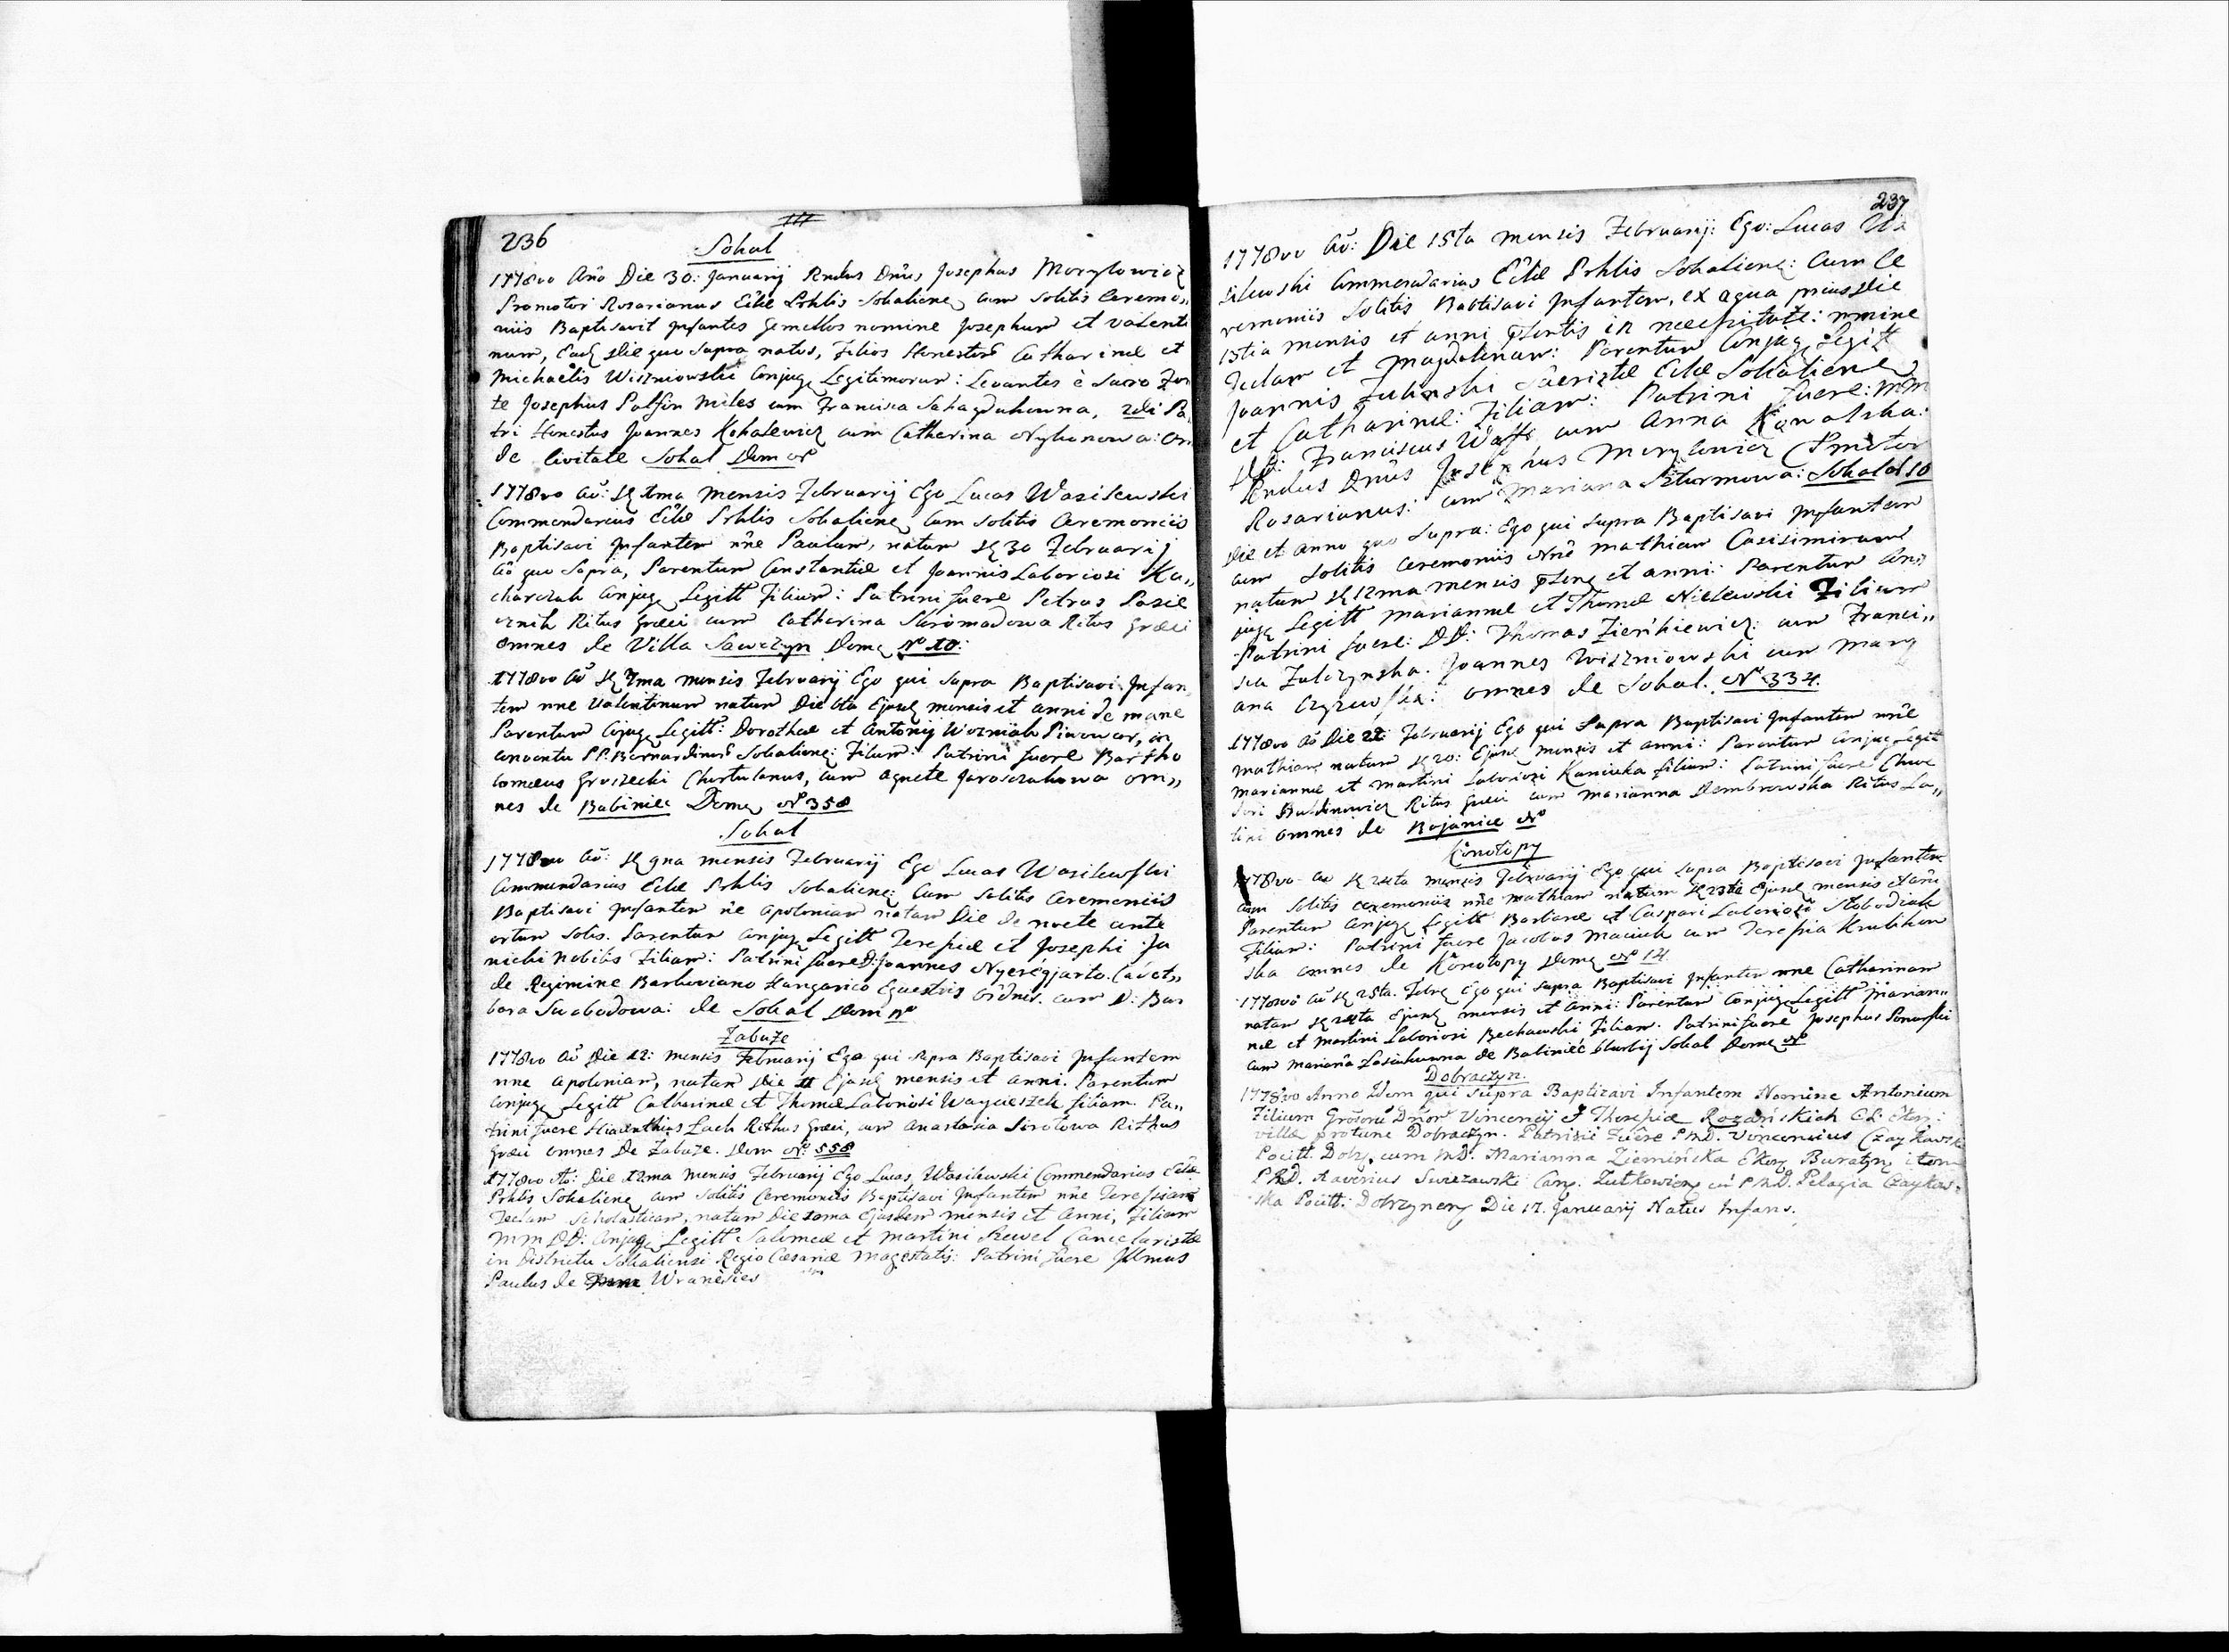 236
III
Sokal
1778vo Año Die 30: Januarij Rndus Dnũs Josephus Morylowicz
Promotor Rosarianus Eclæ Prhlis Sokaliens cum solitis Ceremo„
niis Baptisavit Infantes Gemellos nomine Josephum et Valenti
num, Eadē die quo supra natos, Filios Honestorũ Catharinæ et
Michaelis Wiszniowski Conjugũ Legitimorum: Levantes è Sacro Fon
te Josephus Palfin Miles cum Francisca Sahagduhowna, 2di Pa
tri Honestus Joannes Kohalewicz cum Catharina Nyhonowa: om
de Civitate Sokal Dom No
1778vo Aõ: D 1ma Mensis Februarij Ego Lucas Wasilewski
Commendarius Eclæ Prhlis Sokaliens Cum solitis Ceremoniis
Baptisavi Infantem nñe Paulum, natum D 30 Februarij
Aõ quo Supra, Parentum Constantiæ et Joannis Laboriosi Ka„
charczuk Conjugũ Legitt Filium: Patrini fuere Petrus Pasie
cznik Ritus Græci cum Catharina Skromadowa Ritus Græci
omnes de Villa Sawczyn Domũ No 10.
1778vo Aõ D 7ma mensis Februarij Ego qui supra Baptisavi Infan
tem nne Valentinum natum Die 6ta Ejusdē mensis et anni de mane
Parentum Cõjugũ Legitt: Dorotheæ et Antonij Wozniak Piwowar, in
conventu PP. Bernardinorũ Sokaliens: Filium: Patrini fuere Bartho
lomeus Groszecki Chortulanus, cum Agnete Jarosczukowa om„
nes de Babiniec Domũ No 358
Sokal
1778vo Aõ: D 9na mensis Februarij Ego Lucas Wasilewski
Commendarius Eclæ Prhlis Sokaliens: Cum solitis Ceremoniis
Baptisavi Infantem ñe Apoloniam natam Die de nocte ante
ortum solis. Parentum Conjugũ Legitt Teresiæ et Josephi Ja
nicki Nobilis Filiam: Patrini fuere D: Joannes Nyeregjarto. Cadet„
de Regimine Barkoviano Hangarico Equestris Ordnis. cum D: Bar
bara Swobodowa: de Sokal Dom no
Zabuże
1778vo Aõ Die 12: mensis Februarij Ego qui supra Baptisavi Infantem
nne Apoloniam, natam Die 11 Ejusdē mensis et anni. Parentum
Conjugũ Legitt Catharinæ et Thomæ Laboriosi Waycieszek filiam. Pa„
trini fuere Hiacinthus Lach Rithus Græci, cum Anastasia Sorotowa Rithus
Græci omnes De Zabuże. Dom No. 558
1778vo Aõ: Die 12ma Mensis Februarij Ego Lucas Wasilewski Commendarius Eclæ
Prhlis Sokaliens cum solitis Ceremoniis Baptisavi Infantem nñe Teressiam
Teclam Scholasticam, natam Die 10ma Ejusdem mensis et Anni, Filiam
MM DD: Conjugũ Legitt Salomeæ et Martini Rewel Cancelaristæ
in Districtu Sokaliensi Regio Cæsariæ Magestatis: Patrini fuere Jllmus
Paulus de Wranèsies
237
1778vo Aõ: Die 15ta mensis Februarij: Ego: Lucas Wa
silewski Commendarius Eclæ Prhlis Sokaliens: Cum Ce
remoniis Solitis Babtisavi Infantem, ex aqua prius die
13tia mensis et anni p̃sentis in necessitate: nmine
Teclam et Magdalenam: Parentum Conjugũ Legitt
Joannis Zulinski Sacristæ Eclæ Sokaliens
et Catharinæ: Filiam: Patrini fuere: MM
DD: Franciscus Wolff cum Anna Kowalska:
Rndus Dnũs Josephus Morylowicz Pmotor
Rosarianus: cum Mariana Szturmowa: Sokal No 10
Die et anno quo supra: Ego qui supra Baptisavi Infantem
cum solitis Ceremoniis Nñe Mathiam Casisimirum
natum D 12ma mensis p̃sens et anni: Parentum Con
jugũ Legitt Mariannæ et Thomæ Nielewski Filium
Patrini fuere: DD: Thomas Zieńkiewicz: cum Franci„
sca Zulczynska. Joannes Wiszniowski cum Mary
ana Czyzewska: omnes de Sokal. No 334.
1778vo Aõ Die 22: Februarij Ego qui supra Baptisavi Infantem nñe
Mathiam natum D 20: Ejusdē mensis et anni: Parentum Conjugũ Legitt
Mariannæ et Martini Laboriosi Kaniuka filium: Patrini fuere Chwe
dori Buldinowicz Ritus Græci cum Marianna Dembrowska Ritus La„
tini omnes de Bojanice No
Konotopy
1778vo Aõ D 24ta mensis Februarij Ego qui supra Baptisavi Infantem
cum solitis ceremoniis nñe Mathiam natum D 23tia Ejusdē mensis et anni
Parentum Conjugũ Legitt Barbaræ et Caspari Laboriosi Stobodiak
Filium: Patrini fuere Jacobus Maciuk cum Teressia Krubikow
ska omnes de Konotopy Domũ No 14.
1778vo Aõ D 25ta. Febrũ Ego qui supra Baptisavi Infantem nne Catharinam
natam D 24ta Ejusdē mensis et Anni: Parentum Conjugũ Legitt Marian„
næ et Martini Laboriosi Bechawski Filiam. Patrini fuere Josephus Ponowski
cum Mariañа Lasiukowna de Babiniec blurbij Sokal Domũ No
Dobraczyn.
1778vo Anno Idem qui supra Baptizavi Infantem Nomine Antonium
Filium Grõsorũ Dñor Vincencij et Theressiæ Rozańskich CP. Eter.:
villæ protunc Dobraczyn. Patrini Fuêre P.M.D. Vincensius Czaykowsk
Pocitt. Dobr. cum M.D. Marianna Ziemińcka Eter. Buratyn item
P.M.D. Xaverius Swieżawski Cans: Zułkowiens cũ P.M.D. Pelagia Czaykow„
ska Pocitt: Dobrzynens Die 17. Januarij Natus Infans.